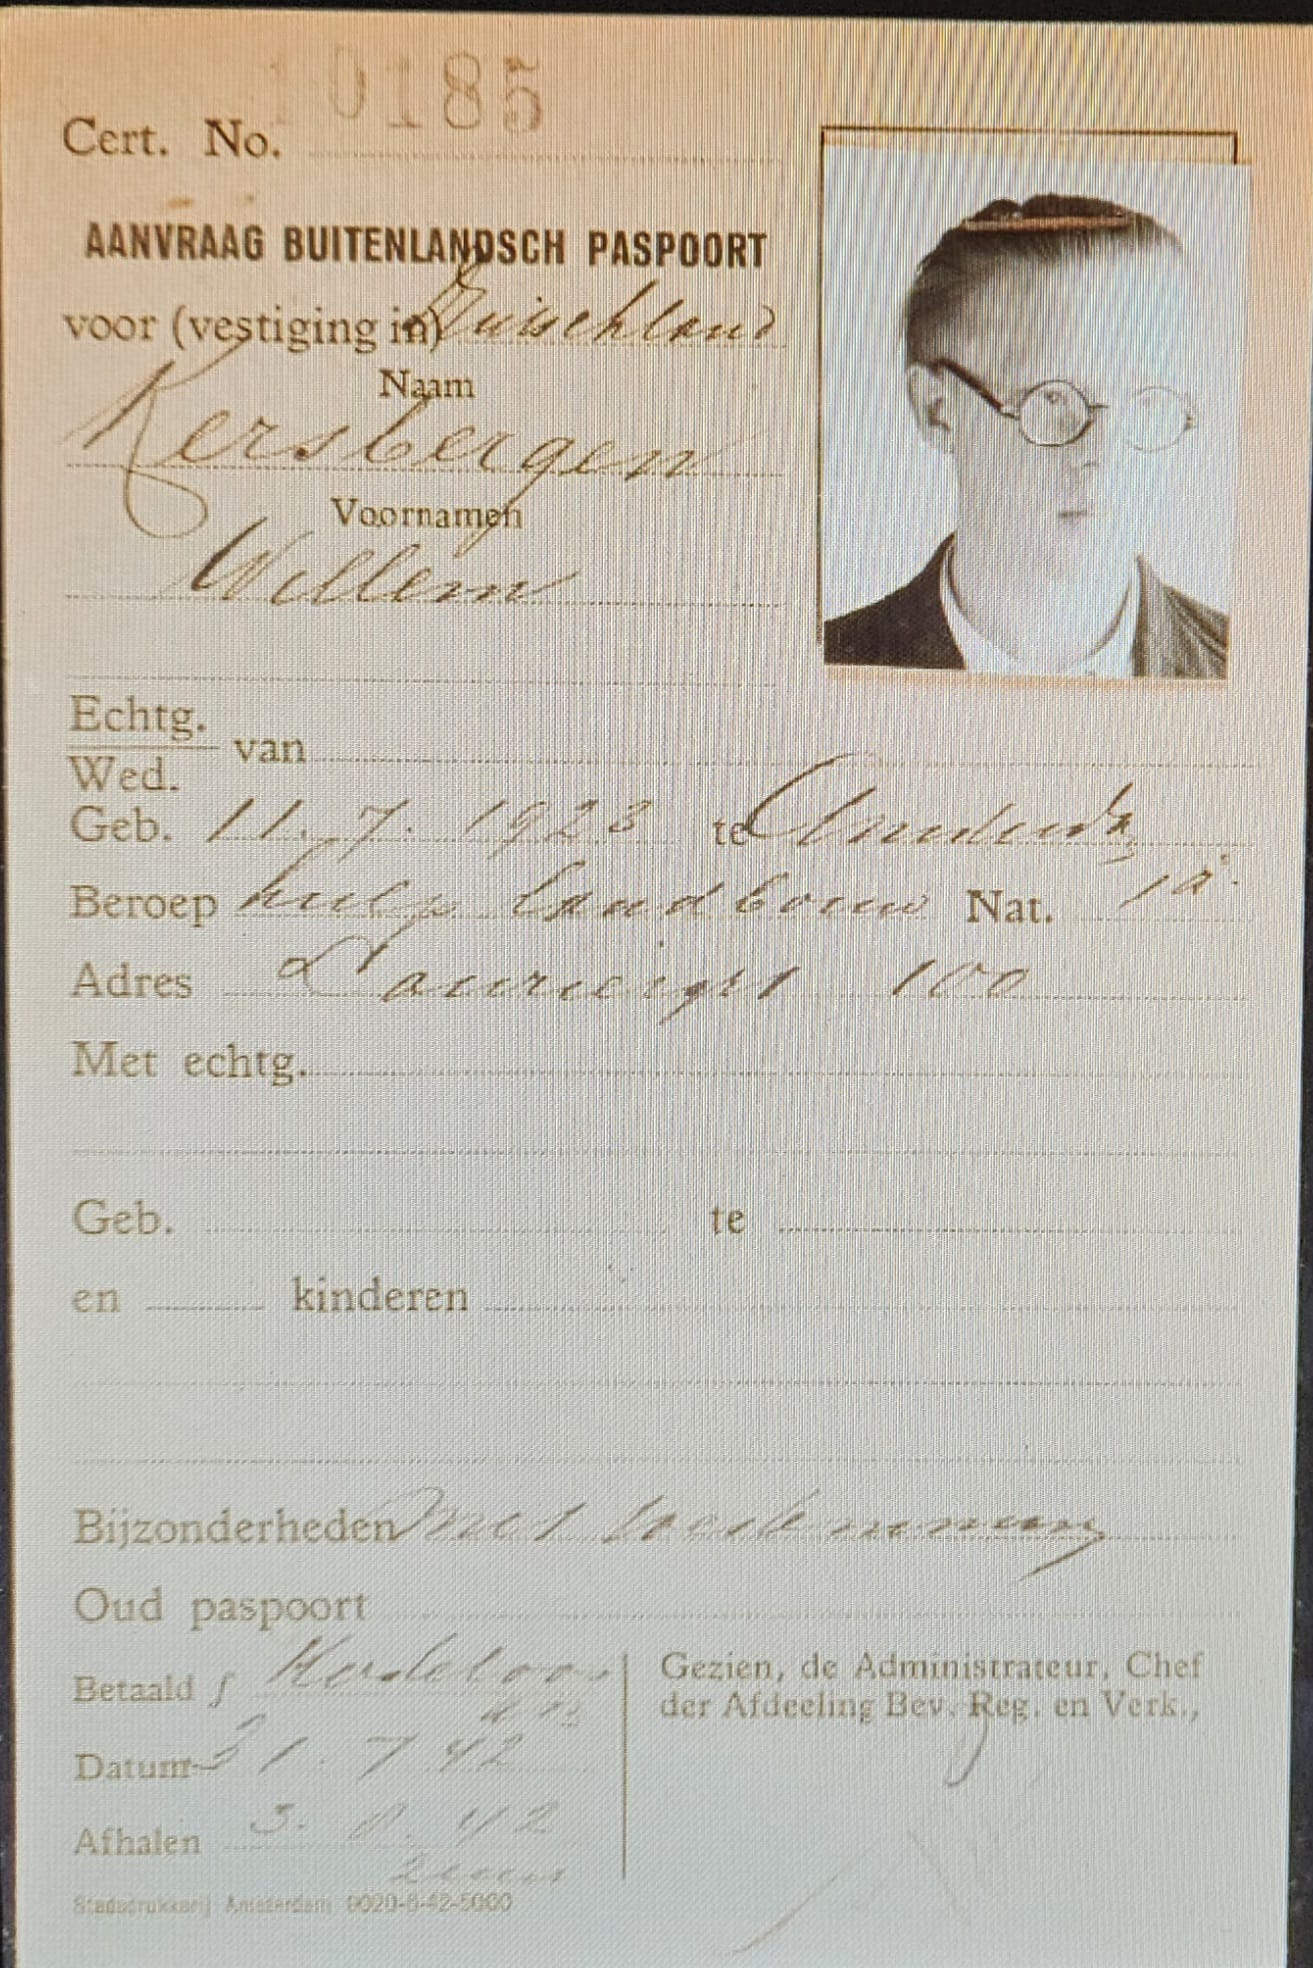 10185
Cert. No.
AANVRAAG BUITENLANDSCH PASPOORT
voor (vestiging in) Duischland
Naam
Kersbergen
Voornamen
Willem
Echtg.
van
Wed.
Geb. 11. 7. 1923 te
Beroep hulp landbouw Nat.
Adres Lauriergr 100
Met echtg.
Geb. te
en kinderen
Bijzonderheden Met toestemming
Oud paspoort
Betaald f Kosteloos
Gezien, de Administrateur, Chef
der Afdeeling Bev. Reg. en Verk.,
Datum 31. 7 42
Afhalen 3. 8. 42
Stadsdrukkerij Amsterdam 9020-6-42-5000